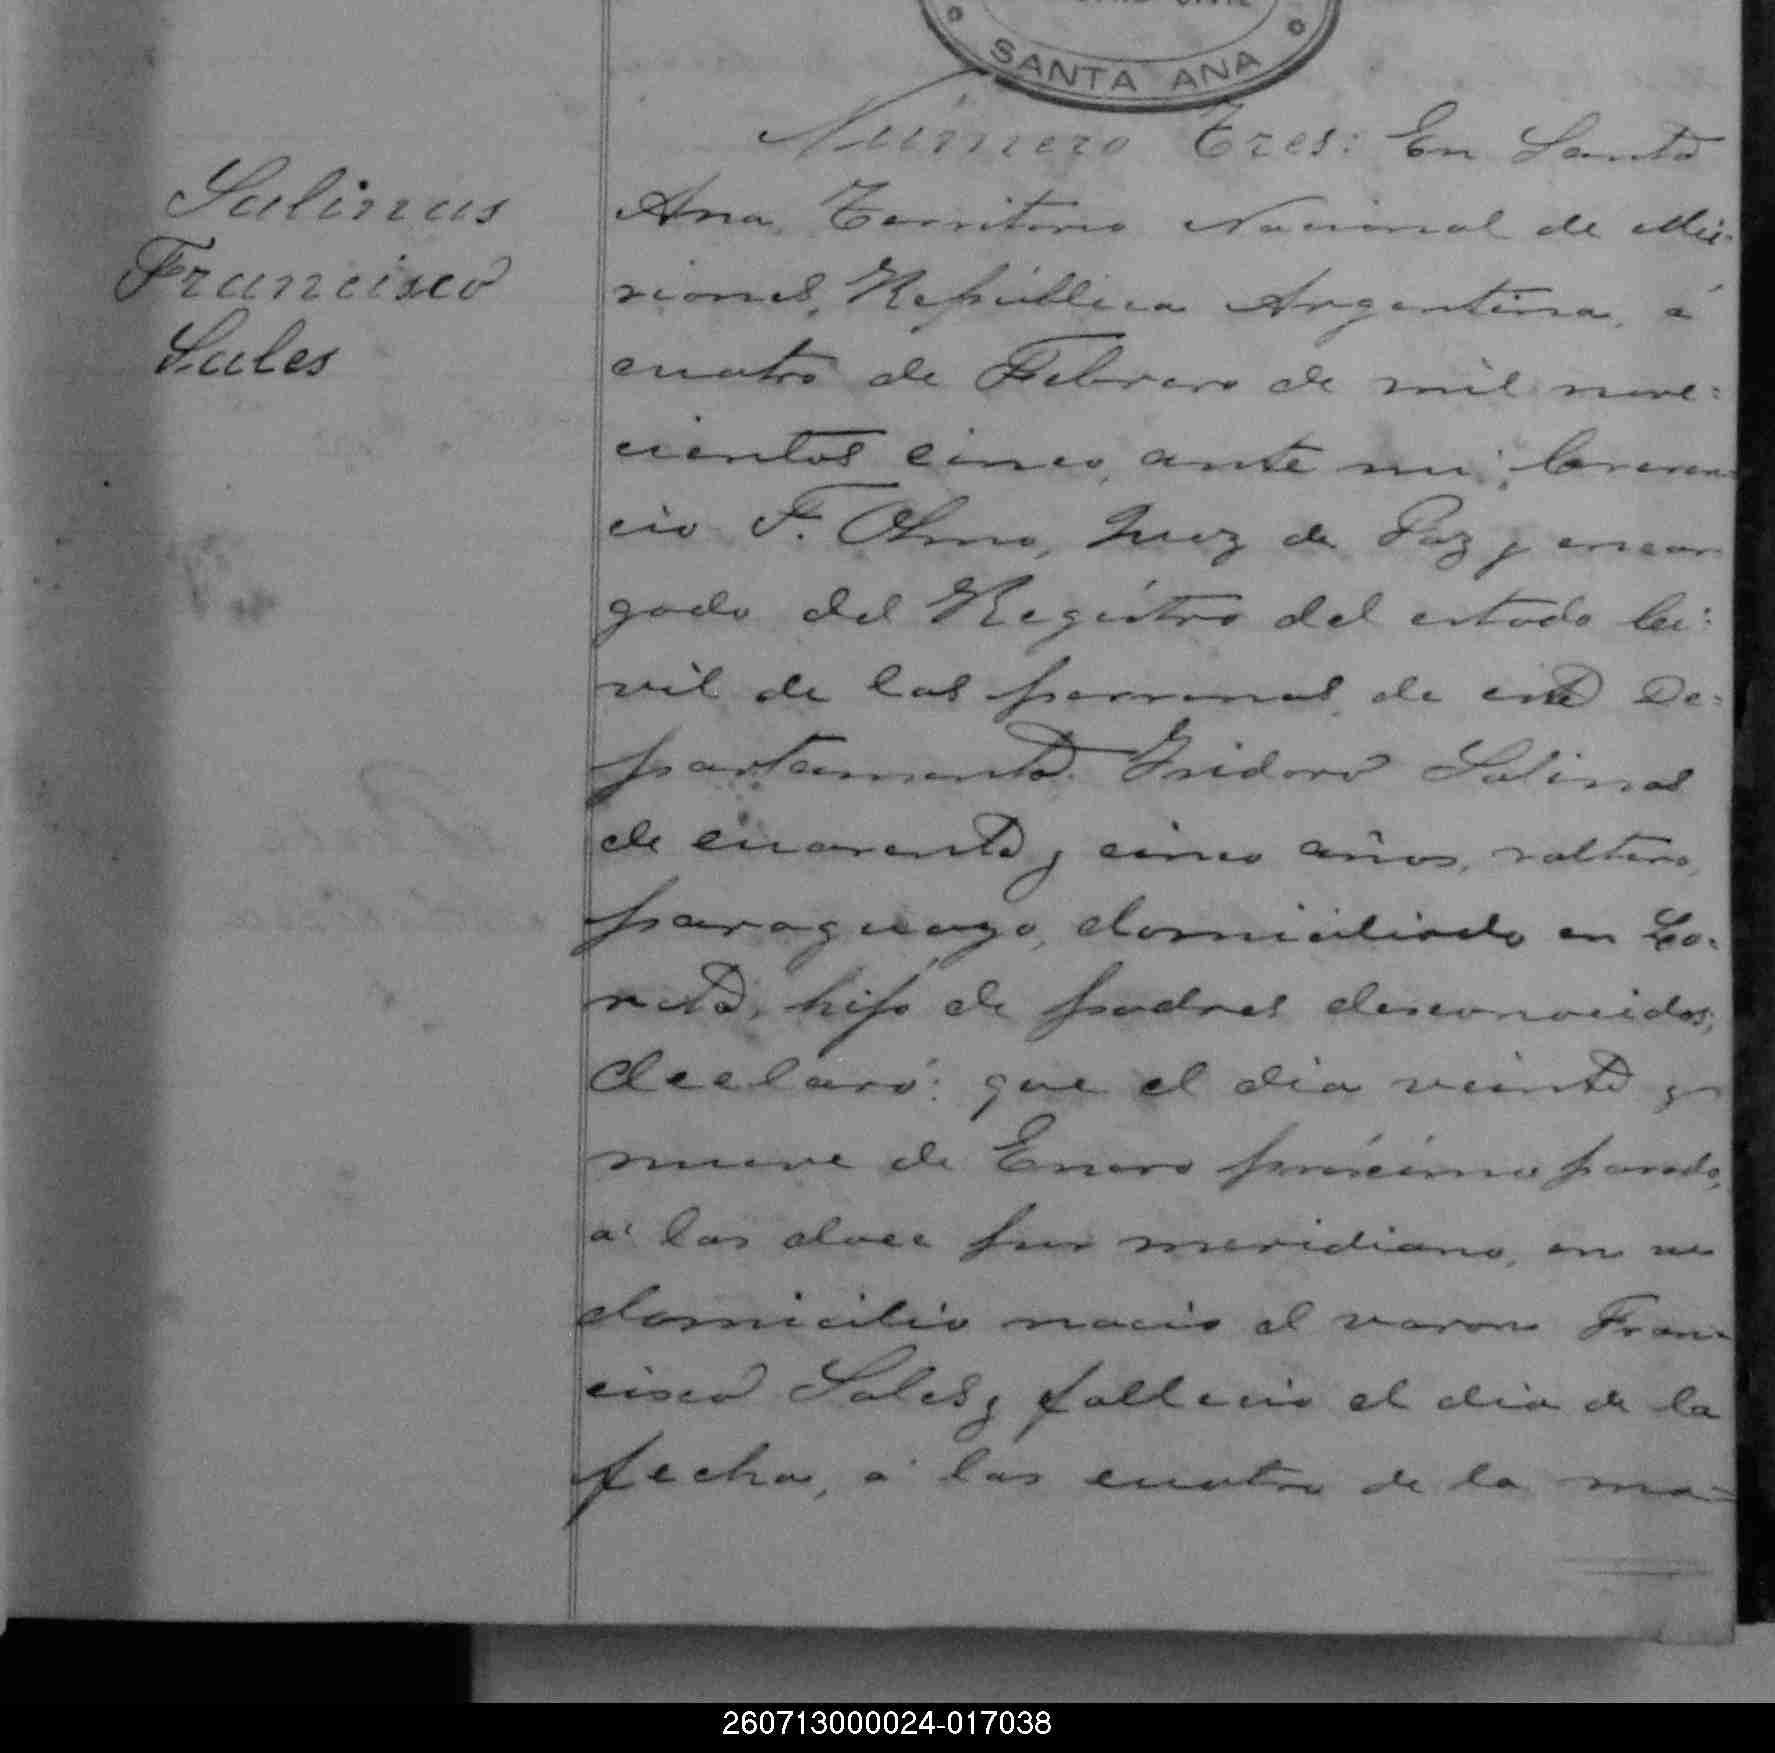 SANTA ANA
Número Tres: En Santa
Salinas
Francisco
Sales
Ana, Territorio Nacional de Mi-
siones, República Argentina, á
cuatro de Febrero de mil nove-
cientos cinco, ante mi,
cio F. Olmo, Juez de Paz y encar
gado del Registro del estado Ci-
vil de las personas de este De-
partamento. Isidoro Salinas
de cuarenta y cinco años, soltero,
paraguayo, domiciliado en Lo-
reto, hijo de padres desconocidos,
declaró: que el dia veinte y
nueve de Enero próximo pasado,
á las doce pos meridiano, en su
domicilio nacio el varon Fran-
cisco Sales y fallecio el dia de la
fecha, á las cuatro de la ma-
260713000024-017038